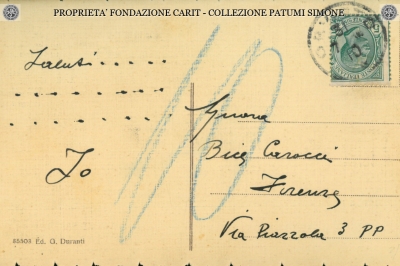 PROPRIETA' FONDAZIONE CARIT - COLLEZIONE PATUMI SIMONE
Saluti
Io
10
Signora
Bice Carocci
Firenze
Via Piazzola 3 PP
Ed. G. Duranti